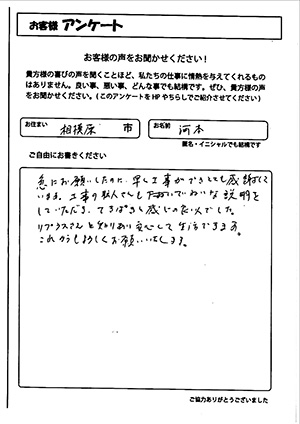 お客様 アンケート
お客様の声をお聞かせください！
貴方様の喜びの声を聞くことほど、私たちの仕事に情熱を与えてくれるもの
はありません。良い事、悪い事、どんな事でも結構です。ぜひ、貴方様の声
をお聞かせください。(このアンケートをHPやちらしでご紹介させてください)
お住まい 相模原 市
お名前 河本
匿名・イニシャルでも結構です
ご自由にお書きください
急にお願いしたのに、早く工事ができとても感謝して
います。工事の職人さんもていねいな説明を
していただき、てきぱきと感じの良い人でした。
リプラスさんと知りあい安心して生活できます。
これからも宜しくお願いいたします。
ご協力ありがとうございました